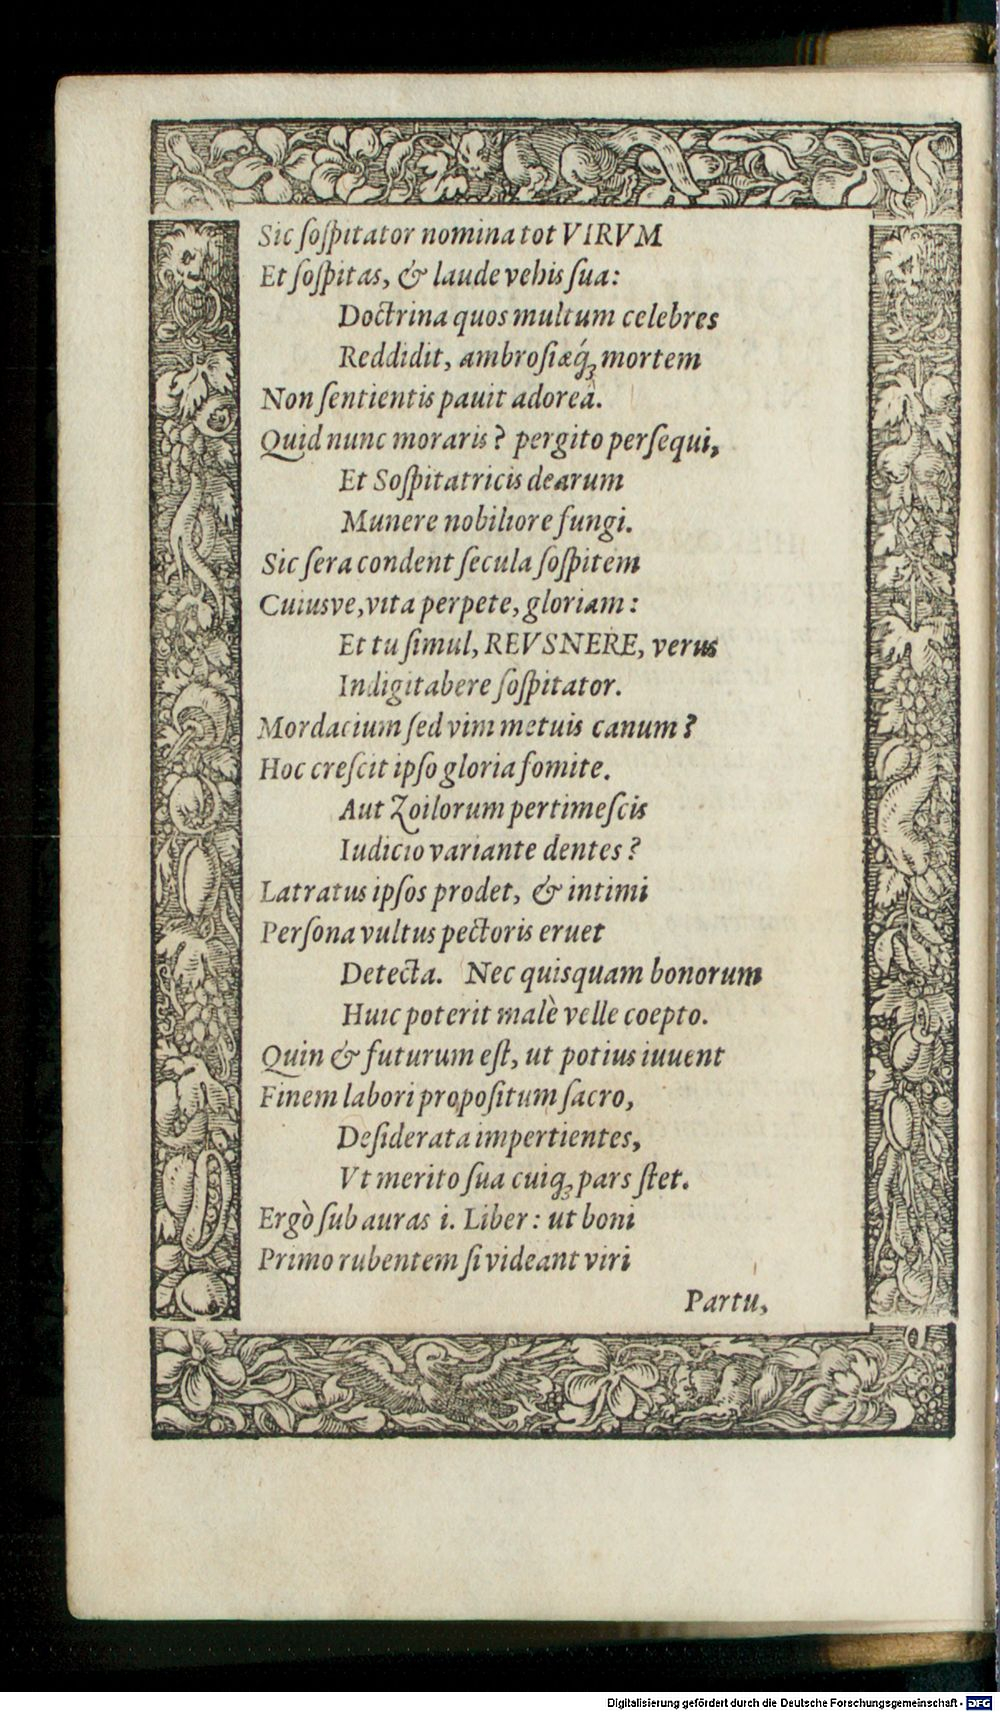 Sic ſoſpitator nomina tot VIRVM
Et ſoſpitas, & laude vehis ſua:
Doctrina quos multum celebres
Reddidit, ambroſiæq́ꝫ mortem
Non ſentientis pauit adoreâ.
Quid nunc moraris? pergito perſequi,
Et Soſpitatricis dearum
Munere nobiliore fungi.
Sic ſera condent ſecula ſoſpitem
Cuiusve, vita perpete, gloriam:
Et tu ſimul, REVSNERE, verus
Indigitabere ſoſpitator.
Mordacium ſed vim metuis canum?
Hoc creſcit ipſo gloria fomite.
Aut Zoilorum pertimeſcis
Iudicio variante dentes?
Latratus ipſos prodet, & intimi
Perſona vultus pectoris eruet
Detecta. Nec quisquam bonorum
Huic poterit malè velle coepto.
Quin & futurum eſt, ut potius iuuent
Finem labori propoſitum ſacro,
Deſiderata impertientes,
Vt merito ſua cuiqꝫ pars ſtet.
Ergò ſub auras i. Liber: ut boni
Primo rubentem ſi videant viri
Partu,
Digitalisierung gefördert durch die Deutsche Forschungsgemeinschaft - DFG